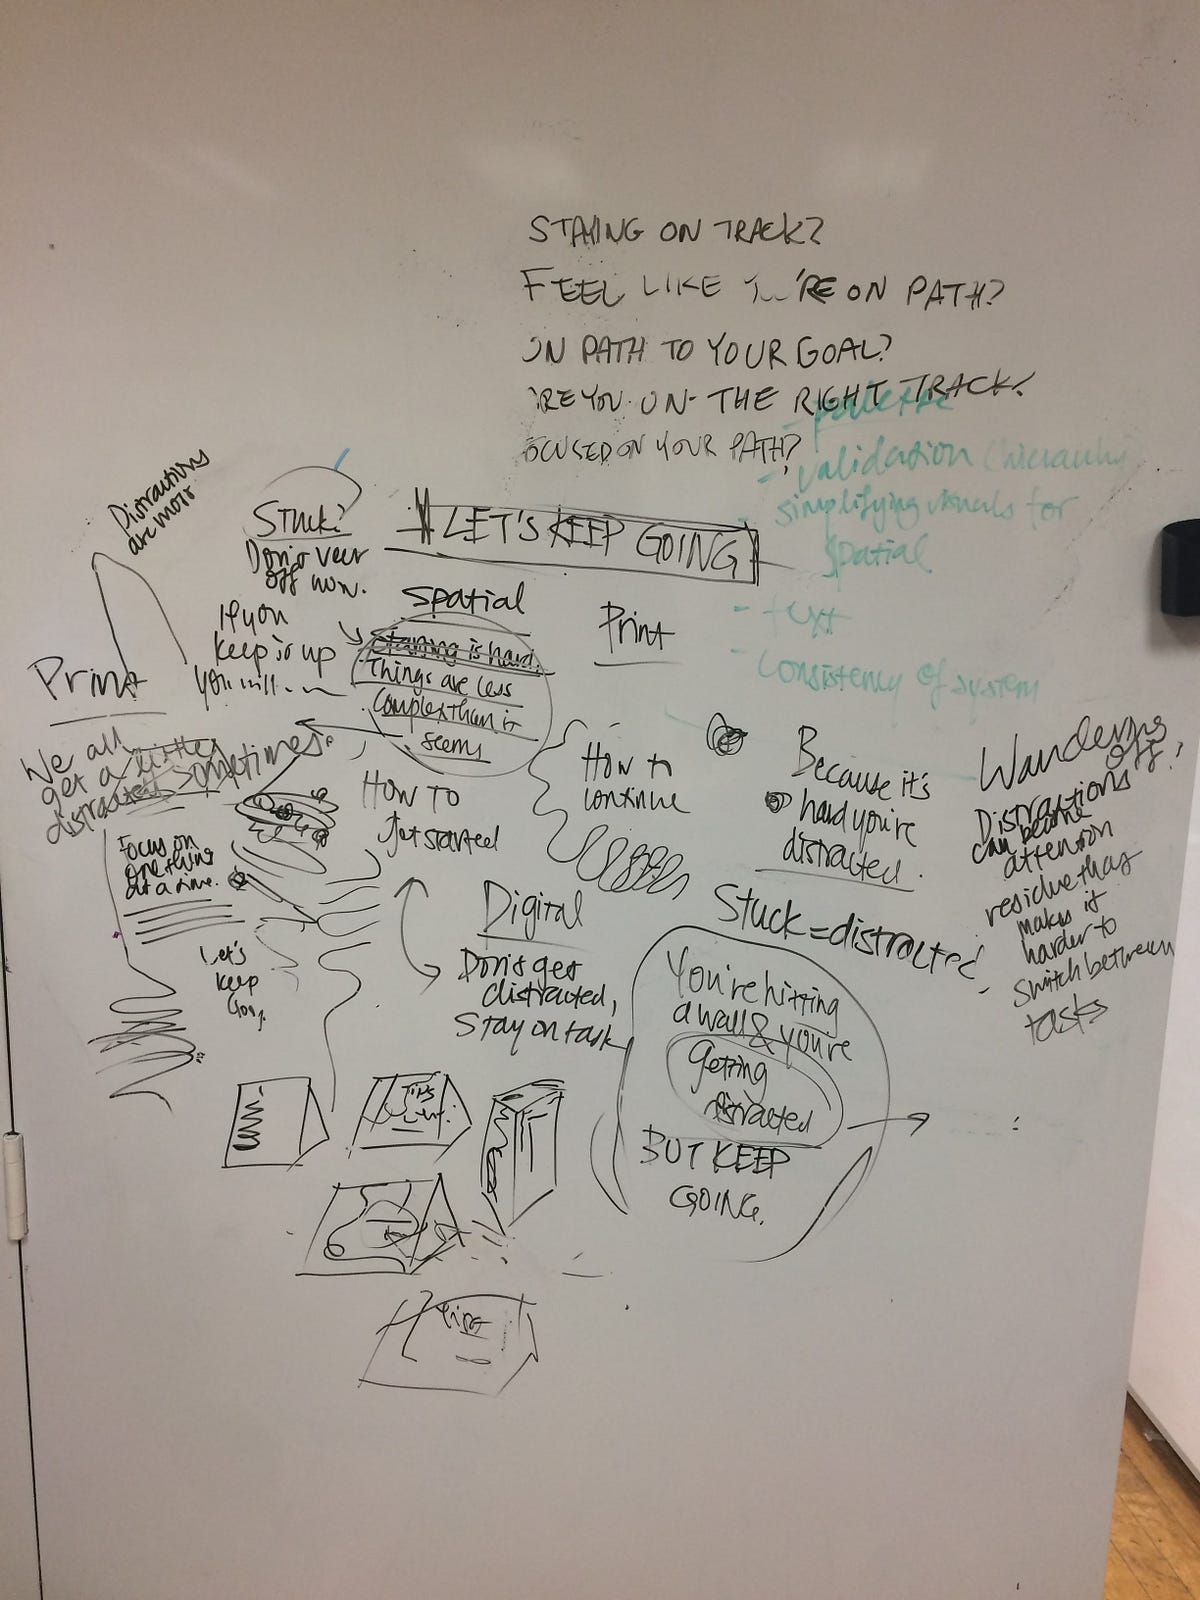 STAYING ON TRACK?
FEEL LIKE YOU'RE ON PATH?
ON PATH TO YOUR GOAL?
ARE YOU ON THE RIGHT TRACK?
FOCUSED ON YOUR PATH?
- palette
- validation (hierarchy
simplifying visuals for
spatial
- text
- consistency of system
Distractions
are more
Stuck?
Don't veer
off now.
LET'S KEEP GOING
If you
keep it up
you will...
Spatial
Starting is hard.
Things are less
complex than it
seems
Print
Print
We all
get a little
distracted sometimes.
Focus on
one thing
at a time.
Let's
keep
going.
How to
get started
How to
continue
Because it's
hard you're
distracted.
Wandering
off?
Distractions
can become
attention
residue that
makes it
harder to
switch between
tasks
Digital
Don't get
distracted,
Stay on task
Stuck = distracted
You're hitting
a wall & you're
getting
distracted
BUT KEEP
GOING.